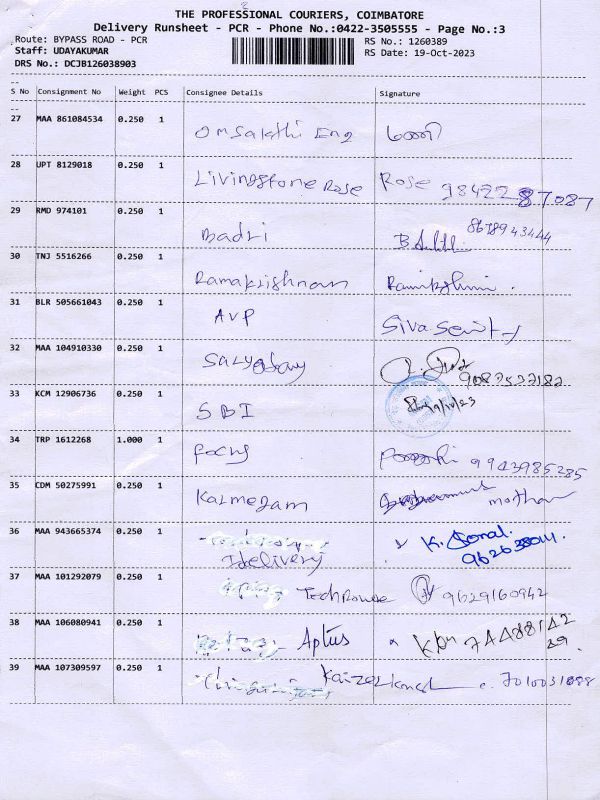 THE PROFESSIONAL COURIERS, COIMBATORE
Delivery Runsheet - PCR - Phone No.:0422-3505555 - Page No.:3
Route: BYPASS ROAD - PCR RS No.: 1260389
Staff: UDAYAKUMAR RS Date: 19-Oct-2023
DRS No.: DCJB126038903
S No Consignment No Weight PCS Consignee Details Signature
27 MAA 861084534 0.250 1 Omsakthi Eng
28 UPT 8129018 0.250 1 Livingstone Rose Rose 9842287087
29 RMD 974101 0.250 1 Badri B 8678943444
30 TNJ 5516266 0.250 1 Ramakrishnan
31 BLR 505661043 0.250 1 AVP Siva
32 MAA 104910330 0.250 1
33 KCM 12906736 0.250 1 SBI
34 TRP 1612268 1.000 1 focus 9943985285
35 CDM 50275991 0.250 1 Kalmegam
36 MAA 943665374 0.250 1 Idelivery K.
37 MAA 101292079 0.250 1 9629160942
38 MAA 106080941 0.250 1 Aptus
39 MAA 107309597 0.250 1